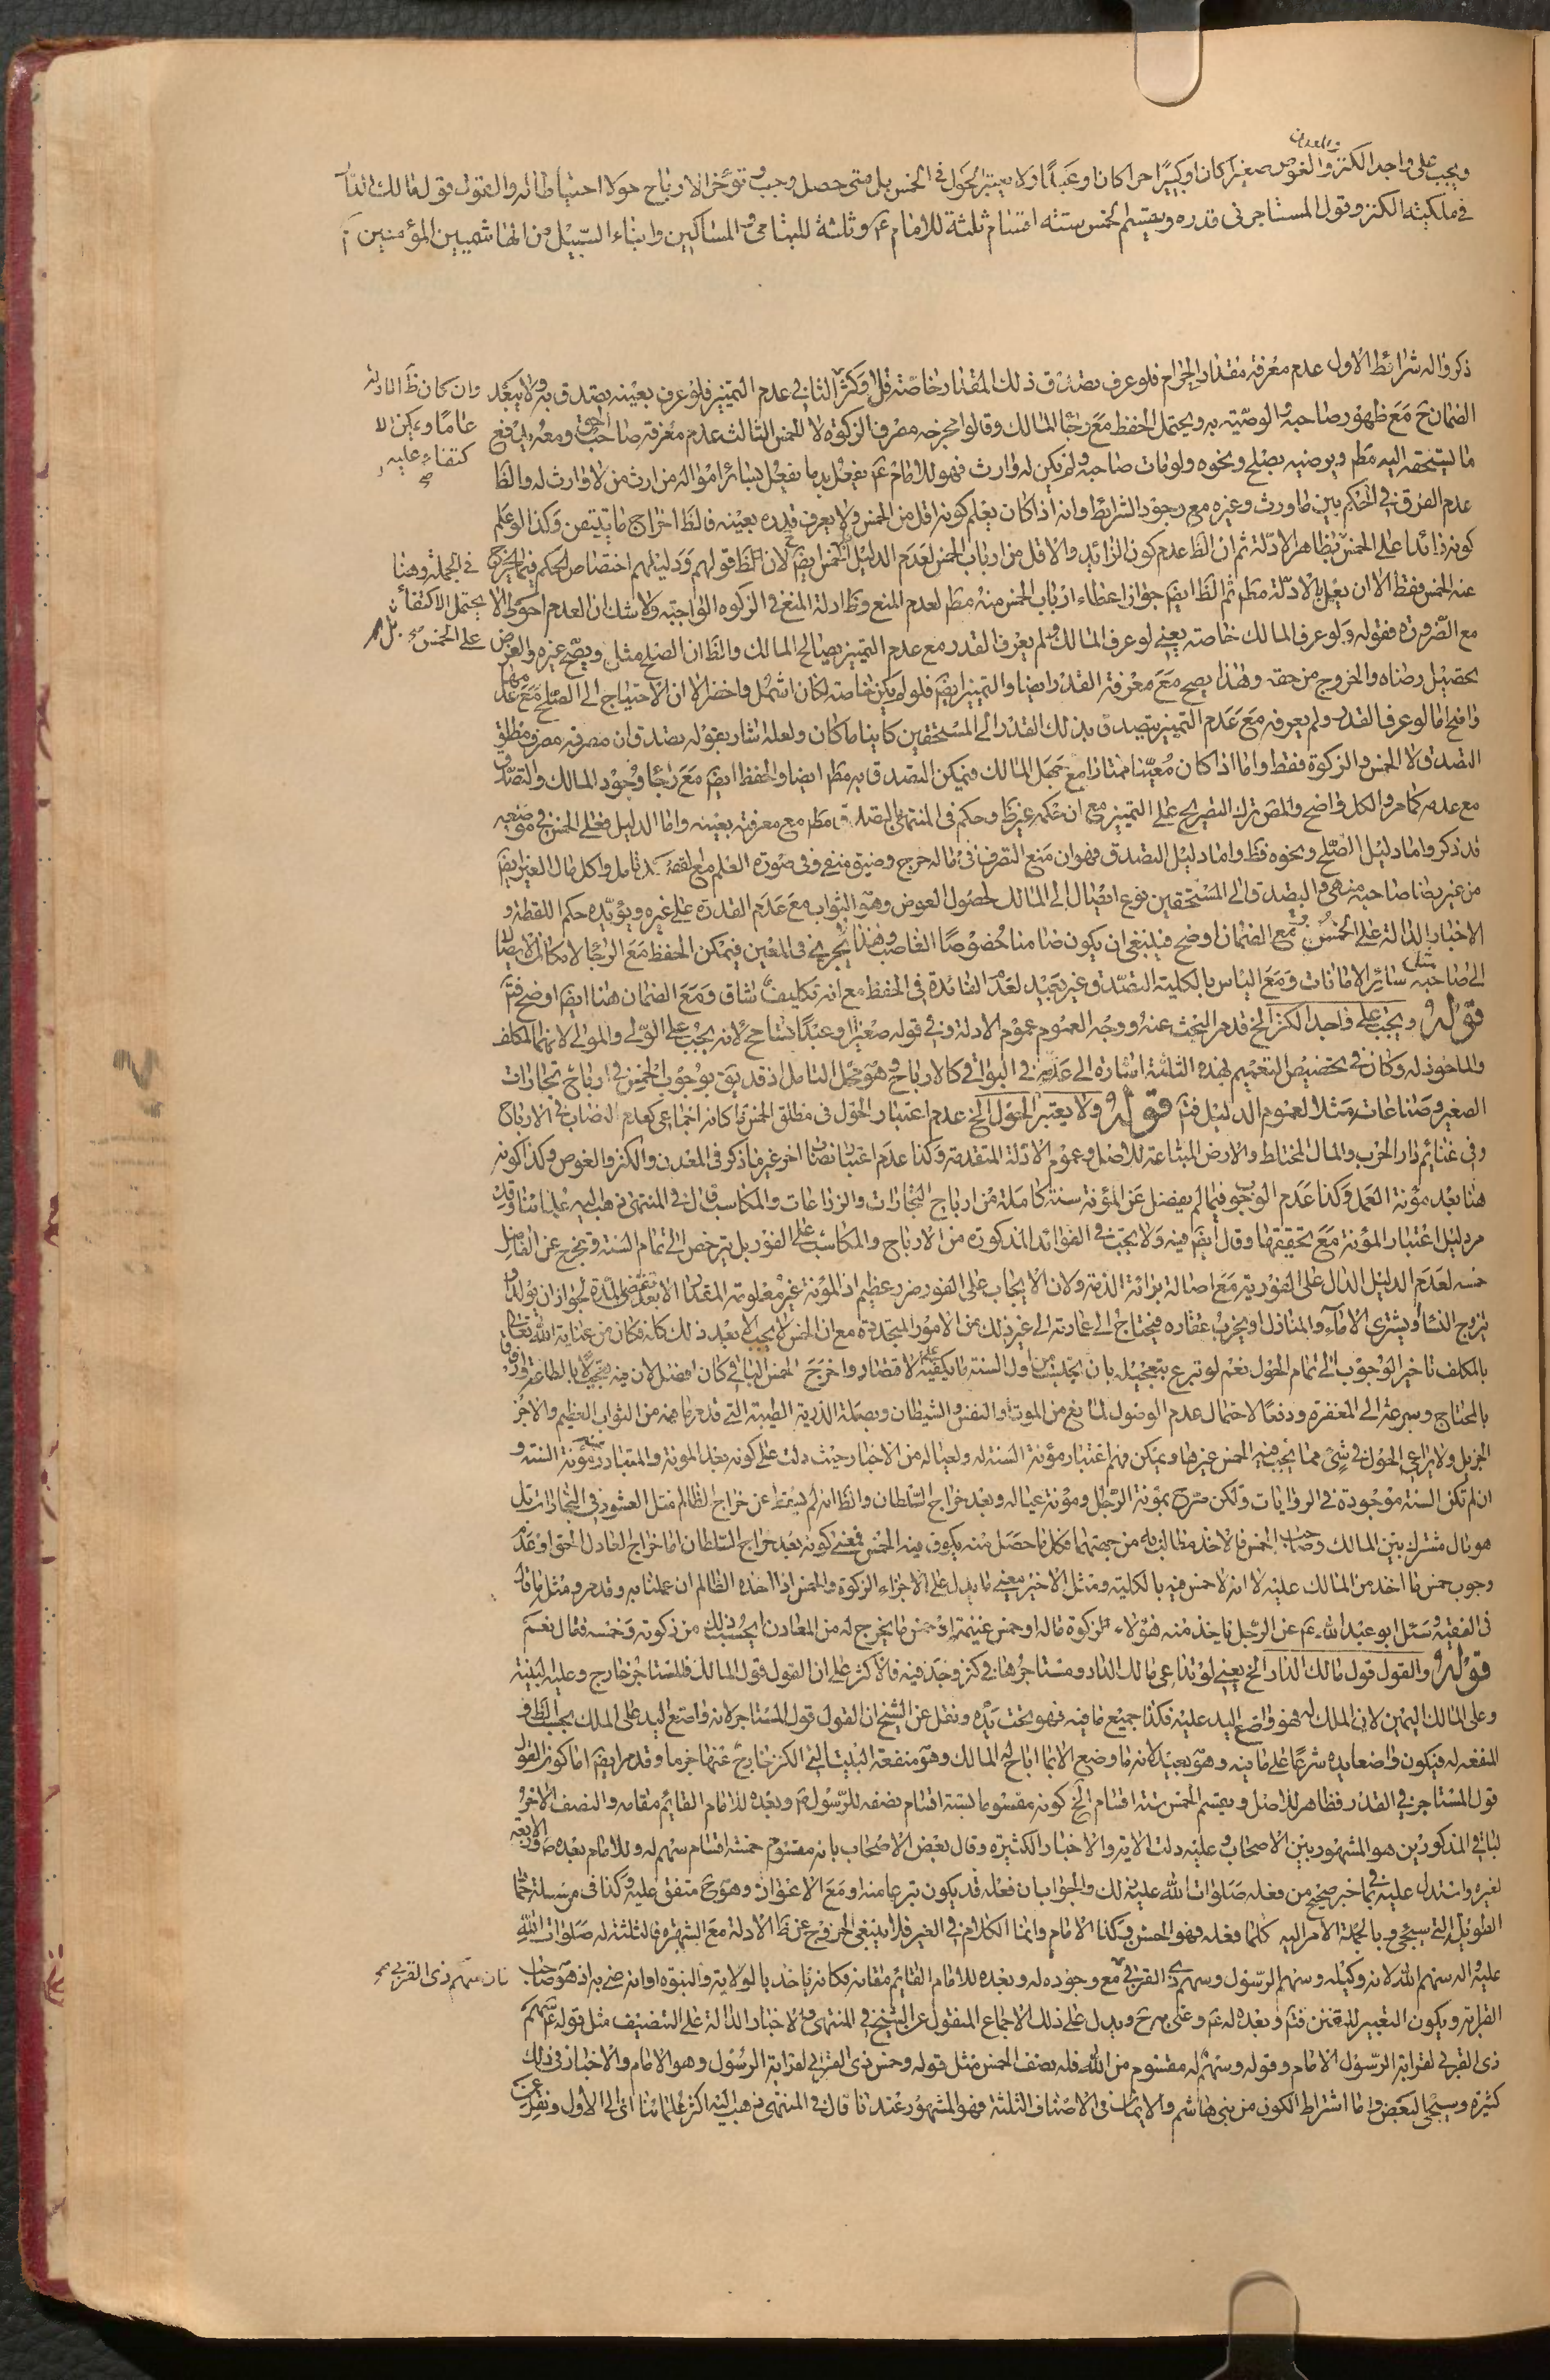 والمعدن
ويجب على واجد الكنز والغوص صغيرا كان او كبيرًا حرا كان او عبدًا ولا يعتبر الحول في الخمس بل متى حصل وجب وتؤخر الارباح حولا احتياطا له والقول قول مالك الدار
في ملكيته الكنز وقول المستاجر في قدره ويقسم الخمس ستة اقسام ثلثة للامام ع وثلثة لليتامى والمساكين وابناء السبيل من الهاشميين المؤمنين
ذكروا له شرائط الاول عدم معرفة مقدار الحرام فلو عرف تصدق ذلك المقدار خاصة قل او كثر الثاني عدم التميز فلو عرف بعينه تصدق به ولا يبعد
الضمان ح مع ظهور صاحبه والوصية به ويحتمل الحفظ مع رجاء المالك وقالوا مخرجه مصرف الزكوة لا الخمس الثالث عدم معرفة صاحب الحق ومعه يدفع
ما يستحقه اليه مط ويرضيه بصلح ونحوه ولو مات صاحبه ولم يكن له وارث فهو للامام ع يفعل به ما يفعل بسائر امواله من ارث من لا وارث له والظ
عدم الفرق في الحكم بين ما ورث وغيره مع وجود الشرائط وانه اذا كان يعلم كونه اقل من الخمس ولا يعرف قدره بعينه فالظ اخراج ما يتيقن وكذا لو علم
كونه زائدا على الخمس بظاهر الادلة ثم ان الظ عدم كون الزائد والاقل من ارباب الخمس لعدم الدليل الخمس ايض لان الظ قولهم ودليلهم اختصاص الحكم
عنه الخمس فقط الا ان يعمل بالادلة مط ثم الظ ايض جواز اعطاء ارباب الخمس منه مط لعدم المنع وظ ادلة المنع في الزكوه الواجبة ولا شك ان العدم احوط الا
مع الضرورة فقوله ولو عرف المالك خاصة يعني لو عرف المالك ولم يعرف القدر مع عدم التميز يصالح المالك والظ ان الصلح مثل ويصح غيره والغرض
تحصيل رضاه والخروج من حقه وهذا يصح مع معرفة القدر ايضا والتميز ايض فلو لم يكن خاصة لكان اشمل واخصر الا ان الاحتياج الى الصلح مع عدمها
واضح اما لو عرف القدر ولم يعرفه مع عدم التميز يتصدق بذلك القدر الى المستحقين كاينا ما كان ولعله اشار بقوله تصدق ان مصرفه مصرف مطلق
التصدق لا الخمس والزكوة فقط واما اذا كان معيّنا ممتازا مع جهل المالك فيمكن التصدق به مط ايضا والحفظ ايض مع رجاء وجود المالك والتصدق
مع عدمه كما مر والكل واضح والمص ترك التصريح على التميز مع ان حكمه غير ظ وحكم في المنتهى بالتصدق مط مع معرفته بعينه واما الدليل فعلى الخمس في موضعه
قد ذكر واما دليل الصلح ونحوه فظ واما دليل التصدق فهو ان منع التصرف في ماله حرج وضيق منفي وفي صورة العلم مع تامل واكل مال الغير ايض
من غير رضا صاحبه منهي والتصدق الى المستحقين نوع ايصال الى المالك لحصول العوض وهو الثواب مع عدم القدرة على غيره ويؤيده حكم اللقطة و
الاخبار الدالة على الخمس ومع الضمان اوضح فينبغي ان يكون ضامنا خصوصًا الغاصب وهذا يجري في المعين فيمكن الحفظ مع الرجاء لامكان الايصال
الى صاحبه مثل سائر الامانات ومع الياس بالكلية التصدق غير بعيد لعدم الفائدة في الحفظ مع انه تكليف شاق ومع الضمان هنا ايضا اوضح فتم
قوله ويجب على واجد الكنز الخ قد مر البحث عنه ووجه العموم عموم الادلة وفي قوله صغيرا وعبدًا تسامح لانه يجب على الولي والمولى لانهما المكلف
والماخوذ له وكان في تخصيص التعميم لهذه الثلثة اشارة الى عدمه في البواقي كالارباح وهو محل التامل اذ قد يق بوجوب الخمس في ارباح تجارات
الصغير وصناعاته مثلا لعموم الدليل فتم قوله ولا يعتبر الحول الخ عدم اعتبار الحول في مطلق الخمس كانه اجماعي كعدم النصاب في الارباح
وفي غنائم دار الحرب والمال المختلط والارض المبتاعة للاصل وعموم الادلة المتقدمة وكذا عدم اعتبار نصاب اخر غير ما ذكر في المعدن والكنز والغوص وكذا كونه
هنا بعد مؤنة العمل وكذا عدم الوجوب فيما لم يفضل عن المؤنة سنة كاملة من ارباح التجارات والزراعات والمكاسب قال في المنتهى ذهب اليه علمائنا وقد
مر دليل اعتبار المؤنة مع تحقيقها وقال ايض فيه ولا يجب في الفوائد المذكورة من الارباح والمكاسب على الفور بل يترخص الى تمام السنة ويخرج عن الفاضل
خمسه لعدم الدليل الدال على الفورية مع اصالة برائة الذمة ولان الايجاب على الفور ضرر عظيم اذ المؤنة غير معلومة المقدار الا بعد تقضي المدة لجواز ان يولد او
يتزوج النساء ويشتري الاماء والمنازل او يخرب عقاره فيحتاج الى عمارته الى غير ذلك من الامور المتجددة مع ان الخمس لا يجب الا بعد ذلك كله فكان من عناية الله تعالى
بالمكلف تاخير الوجوب الى تمام الحول نعم لو تبرع بتعجيله بان يحسب من اول السنة ما يكفيه على الاقتصاد واخرج خمس الباقي كان افضل لان فيه تعجيلا بالطاعة وارفاقا
بالمحتاج وسرعة الى المغفرة ودفعًا لاحتمال عدم الوصول لمانع من الموت او النفس والشيطان وبصلة الذرية الطيبة التي قد عرفت ما فيه من الثواب العظيم والاجر
الجزيل ولا يراعى الحول في شئ مما يجب فيه الخمس غيرها ويمكن فهم اعتبار مؤنة السنة له ولعياله من الاخبار حيث دلت على كونه بعد المؤنة والمتبادر منه مؤنة السنة و
ان لم تكن السنة موجودة في الروايات ولكن صرح بمؤنة الرجل ومؤنة عياله وبعد خراج السلطان والظ انه لم يسقط عن خراج الظالم مثل العشور في التجارات بل
هو مال مشترك بين المالك وصاحب الخمس فالاخذ مطالب به من جهتهما فكل ما حصل منه يكون فيه الخمس فمعنى كونه بعد خراج السلطان اما خراج العادل الحق او عدم
وجوب خمس ما اخذ من المالك عليه لا انه لا خمس فيه بالكلية ومثل الاخير معنى ما يدل على الاجزاء الزكوة والخمس اذا اخذه الظالم ان عملنا به وقد مر ومثل ما قال
في الفقيه وسئل ابو عبد الله ع عن الرجل ياخذ منه هؤلاء زكوة ماله او خمس غنيمته او خمس ما يخرج له من المعادن ايحسب ذلك من زكوته وخمسه فقال نعم
قوله والقول قول مالك الدار الخ يعني لو تداعى مالك الدار ومستاجرها في كنز وجد فيه فالاكثر على ان القول قول المالك فالمستاجر خارج وعليه البينة
وعلى المالك اليمين لان الملك له فهو واضع اليد عليه فكذا جميع ما فيه فهو تحت يده ونقل عن الشيخ ان القول قول المستاجر لانه واضع اليد على الملك بحسب الظ و
المنفعة له فيكون واضعا يده شرعًا على ما فيه وهو بعيد لانه ما وضع الا بما اباح له المالك وهو منفعة البيت التي الكنز خارج عنها جزما وقد مر ايض اما كون القول
قول المستاجر في القدر فظاهر للاصل ويقسم الخمس ستة اقسام الخ كونه مقسوما بستة اقسام نصفه للرسول ص وبعده للامام القائم مقامه والنصف الاخر
لباقي المذكورين هو المشهور بين الاصحاب وعليه دلت الاية والاخبار الكثيرة وقال بعض الاصحاب بانه مقسوم خمسة اقسام سهم له وللامام بعده والاربعة
لغيره واستدل عليه بما في خبر صحيح من فعله صلوات الله عليه ذلك والجواب ان فعله قد يكون تبرعا منه او مع الاعواز وهو ح متفق عليه وكذا في مرسلة حماد
الطويلة التي سيجئ وبالجملة الامر اليه كلما فعله فهو الحسن وكذا الامام وانما الكلام في الغير فلا ينبغي الخروج عن ظ الادلة مع الشهرة فالثلثة له صلوات الله
عليه واله سهم الله لانه وكيله وسهم الرسول وسهم ذي القربى مع وجوده له وبعده للامام القائم مقامه فكانه ياخذ بالولاية والنبوة او انه ضي به اذ هو صاحب
القرابة ويكون التعبير للتفنن فتم وبعده له عم وغنى به ح ويدل على ذلك الاجماع المنقول عن الشيخ في المنتهى والاخبار الدالة على التنصيف مثل قوله عم سهم
ذي القربى لقرابة الرسول الامام وقوله وسهم له مقسوم من الله فله نصف الخمس مثل قوله وخمس ذي القربى لقرابة الرسول وهو الامام والاخبار في ذلك
كثيرة وسيجئ البعض واما اشتراط الكون من بني هاشم والايمان في الاصناف الثلثة فهو المشهور عندنا قال في المنتهى ذهب اليه اكثر علمائنا اي الى الاول ونقل عن
وان كان ظ الادلة
عاما ويمكن الا
كتفاء عليه
صح
في الجملة وهنا
يحتمل الاكتفاء
على الخمس
فان سهم ذي القربى